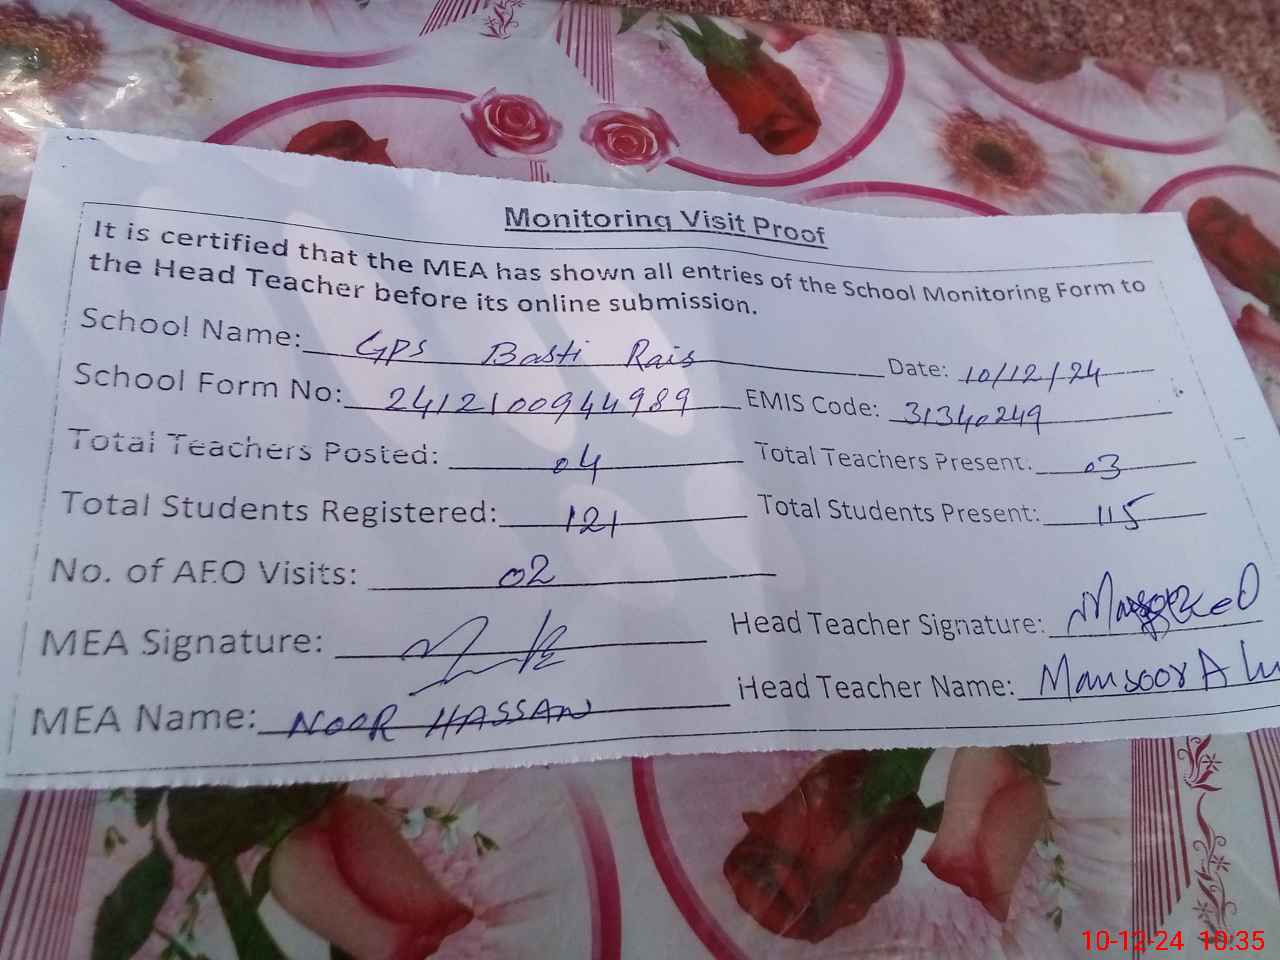 Monitoring Visit Proof
It is certified that the MEA has shown all entries of the School Monitoring Form to
the Head Teacher before its online submission.
School Name: GPS Basti Rais Date: 10/12/24
School Form No: 2412100944989 EMIS Code: 31340249
Total Teachers Posted: 04 Total Teachers Present: 03
Total Students Registered: 121 Total Students Present: 115
No. of AEO Visits: 02
MEA Signature: Head Teacher Signature:
MEA Name: NOOR HASSAN Head Teacher Name: Mansoor A
10-12-24 10:35